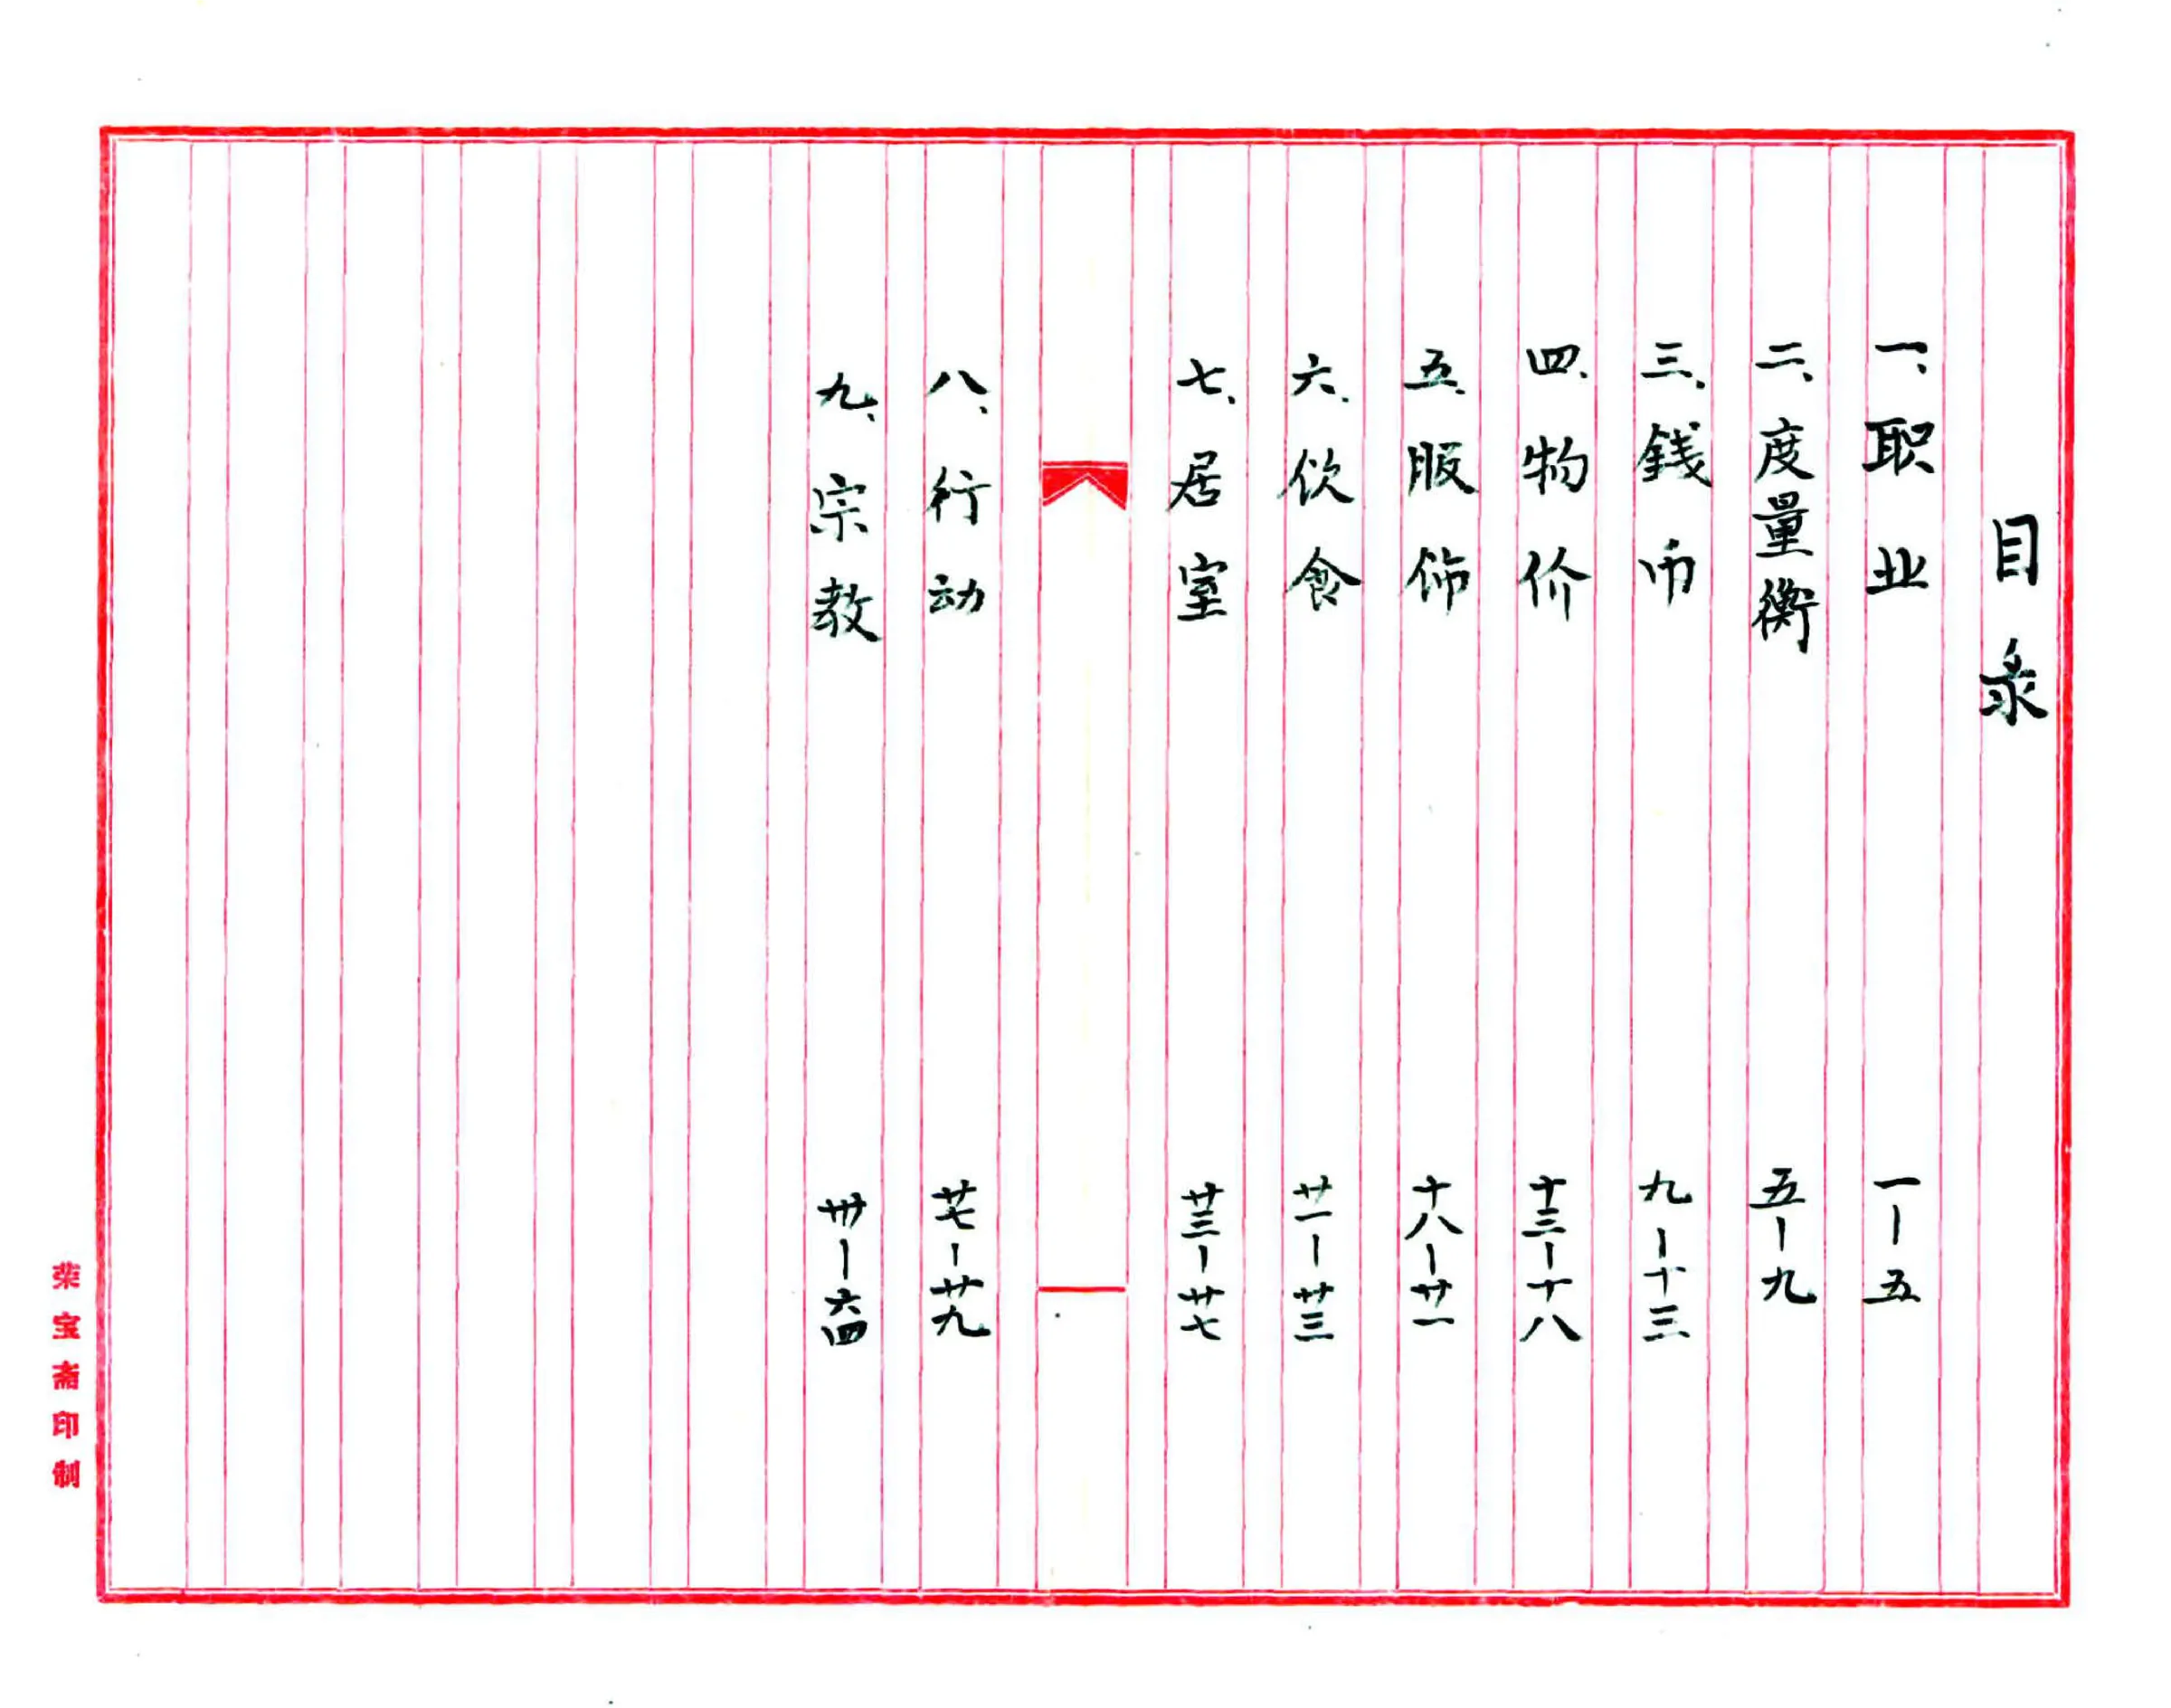 目录
一、职业 一-五
二、度量衡 五-九
三、銭币 九-十三
四、物价 十三-十八
五、服饰 十八-廿一
六、饮食 廿一-廿三
七、居室 廿三-廿七
八、行动 廿七-廿九
九、宗教 卅-六四
荣宝斋印制